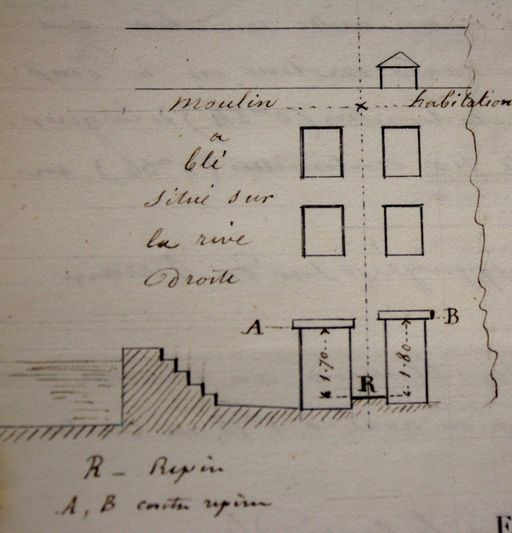 moulin habitation
a
blé
situé sur
la rive
droite
A B
1.70 1.80
R
R _ Repin
A, B contre repin
F